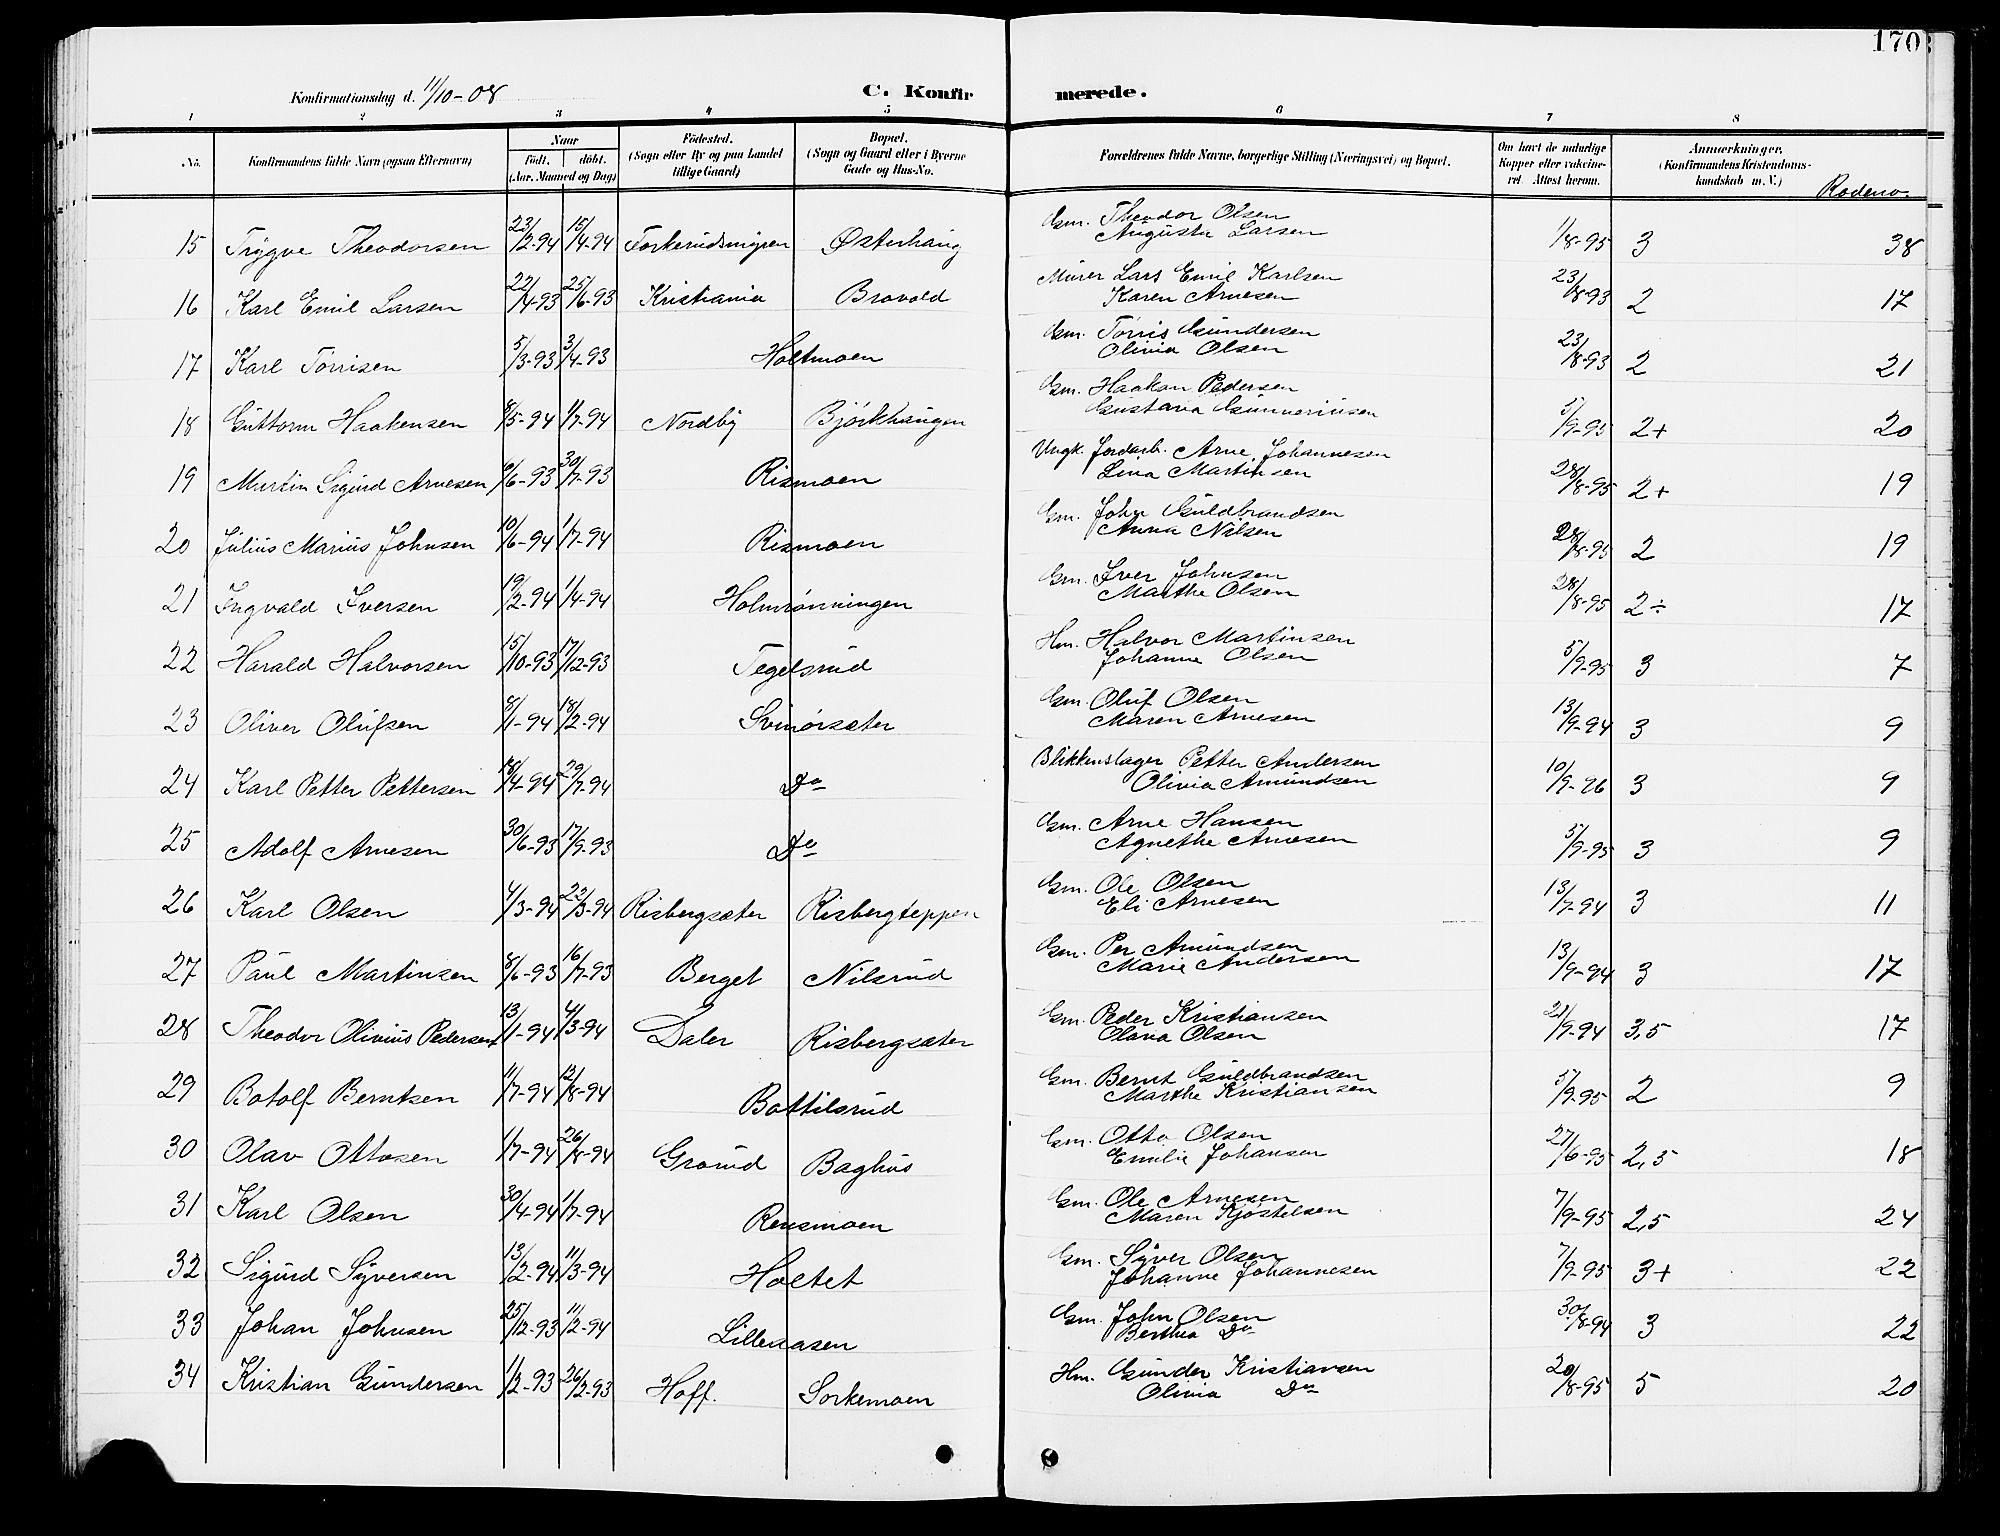 170
Konfirmationsdag d. 11/10-08
C. Konfirmerede.
1 2 3 4 5 6 7 8
No.
Konfirmandens fulde Navn (ogsaa Efternavn)
Naar
Födt. döbt.
(Aar. Maaned og Dag)
Födested.
(Sogn eller By og paa Landet tillige Gaard)
Bopæl.
(Sogn og Gaard eller i Byerne Gade og Hus-No.
Forældrenes fulde Navne, borgerlige Stilling (Næringsvei) og Bopæl.
Om havt de naturlige Kopper eller vakcineret. Attest herom.
Anmærkninger.
(Konfirmandens Kristendomskundskab m. V.)
Rodeno.
15 Trygve Theodorsen 23/2-94 15/4-94 Forkerudsmyren Østerhaug Gm. Theodor Olsen Augusta Larsen 1/8-95 3 38
16 Karl Emil Larsen 22/4-93 25/6-93 Kristiania Bravold Murer Lars Emil Karlsen Karen Arnesen 23/8-93 2 17
17 Karl Tørrisen 5/3-93 3/4-93 Holtmoen Gm. Tørris Gundersen Olivia Olsen 23/8-93 2 21
18 Guttorm Haakensen 8/5-94 1/7-94 Nordby Bjørkhaugen Gm. Haakan Pedersen Gustava Gunneriusen 5/9-95 2+ 20
19 Martin Sigurd Arnesen 6/6-93 30/7-93 Rismoen Ungk. Jordarb. Arne Johannesen Lina Martinsen 28/8-95 2+ 19
20 Julius Marius Johnsen 10/6-94 1/7-94 Rismoen Gm. John Guldbrandsen Anna Nilsen 28/8-95 2 19
21 Ingvald Iversen 19/2-94 1/4-94 Holmrønningen Gm. Iver Johnsen Marthe Olsen 28/8-95 2÷ 17
22 Harald Halvorsen 15/10-93 17/12-93 Tegelsrud Hm. Halvor Martinsen Johanne Olsen 5/9-95 3 7
23 Oliver Olufsen 8/1-94 18/2-94 Svinørsæter Gm. Oluf Olsen Maren Arnesen 13/9-94 3 9
24 Karl Petter Pettersen 18/4-94 29/7-94 Do Blikkenslager Petter Andersen Olivia Amundsen 10/9-96 3 9
25 Adolf Arnesen 30/6-93 17/9-93 Do Gm. Arne Hansen Agnethe Arnesen 5/9-95 3 9
26 Karl Olsen 4/3-94 22/3-94 Risbergsæter Risbergteppen Gm. Ole Olsen Eli Arnesen 13/7-94 3 11
27 Paul Martinsen 8/6-93 16/7-93 Berget Nilsrud Gm. Per Amundsen Marie Andersen 13/9-94 3 17
28 Theodor Olivius Pedersen 13/1-94 4/3-94 Daler Risbergsæter Gm. Peder Kristiansen Olava Olsen 21/9-94 3,5 17
29 Botolf Berntsen 11/7-94 12/8-94 Bottilsrud Gm. Bernt Guldbrandsen Marthe Kristiansen 5/9-95 2 9
30 Olav Ottosen 1/7-94 26/8-94 Grorud Baghus Gm. Otto Olsen Emilie Johansen 27/6-95 2,5 18
31 Karl Olsen 30/4-94 1/7-94 Rensmoen Gm. Ole Arnesen Maren Kjøstelsen 7/9-95 2,5 24
32 Sigurd Syversen 13/2-94 11/3-94 Holtet Gm. Syver Olsen Johanne Johannesen 7/9-95 3+ 22
33 Johan Johnsen 25/12-93 11/2-94 Lilleaasen Gm. John Olsen Berthea Do 30/8-94 3 22
34 Kristian Gundersen 1/2-93 26/2-93 Hoff. Sorkemoen Hm. Gunder Kristiansen Olivia Do 28/8-95 5 20